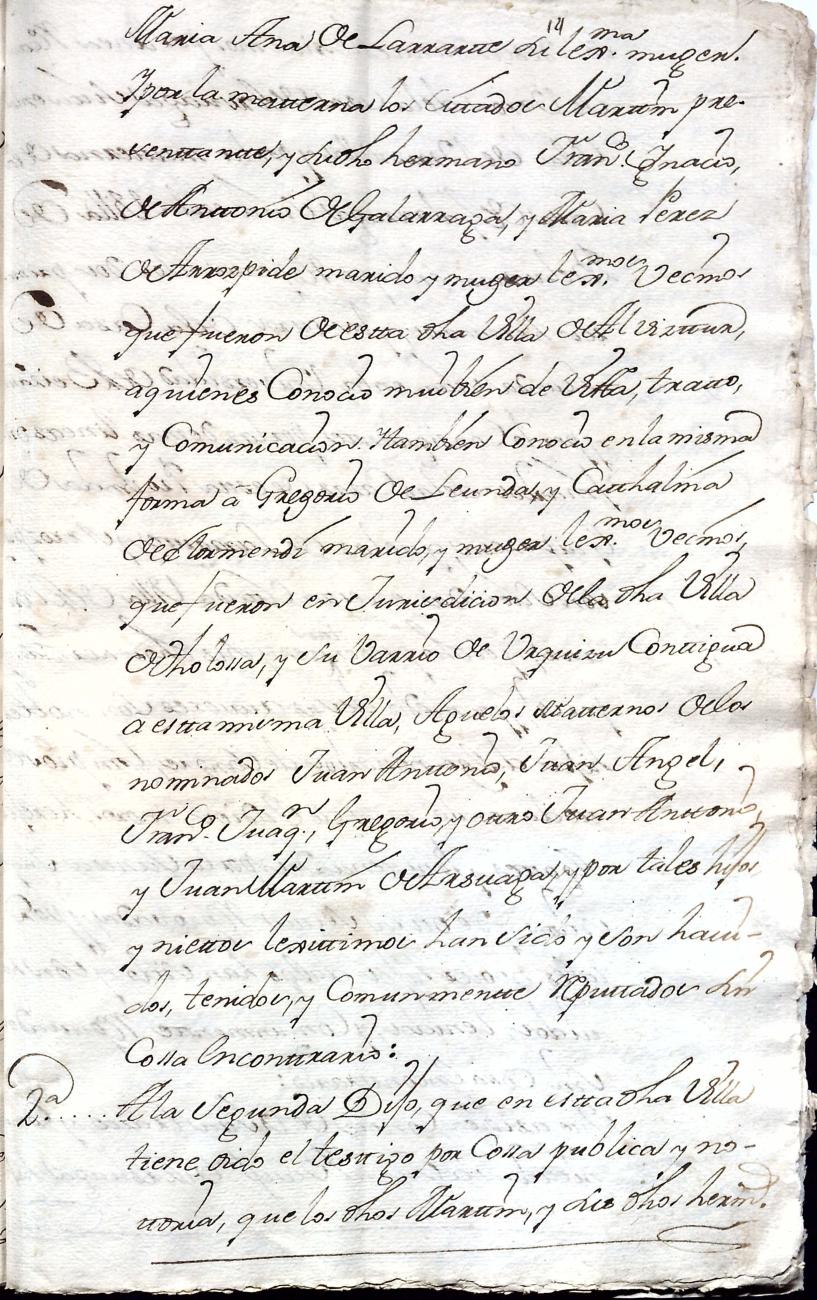 14
Maria Ana de Larrarte su lexma. muger.
Y por la matterna los Cittados Marttin pre-
senttantte, y su dho hermano Franco. Ygnacio,
de Anttonio de Galarraga, y Maria Perez
de Arrozpide marido y muger lexmos. Vecinos
que fueron de estta dha Villa de Alvisttur,
aquienes Conocio mui bien de Vistta, tratto,
y Comunicacion. Y tambien Conocio en la misma
forma a Gregorio de Leunda, y Catthalina
de Garmendi marido, y muger lexmos. Vecinos,
que fueron en Jurisdicion de la dha Villa
de Tholossa, y su Varrio de Urquizu Conttigua
a estta misma Villa, Aguelos Matternos de los
nominados Juan Anttonio, Juan Angel,
Franco. Juaqn., Gregorio, y ottro Juan Anttonio,
y Juan Marttin de Arsuaga, y por tales hijos
y niettos lexittimos han sido y son havi-
dos, tenidos, y Comunmentte Reputtados sin
Cossa en conttrario:
2a..... A la segunda Dijo, que en estta dha Villa
tiene oido el testtigo por Cossa publica y no-
ttoria, que los dhos Marttin, y sus dhos hermos.